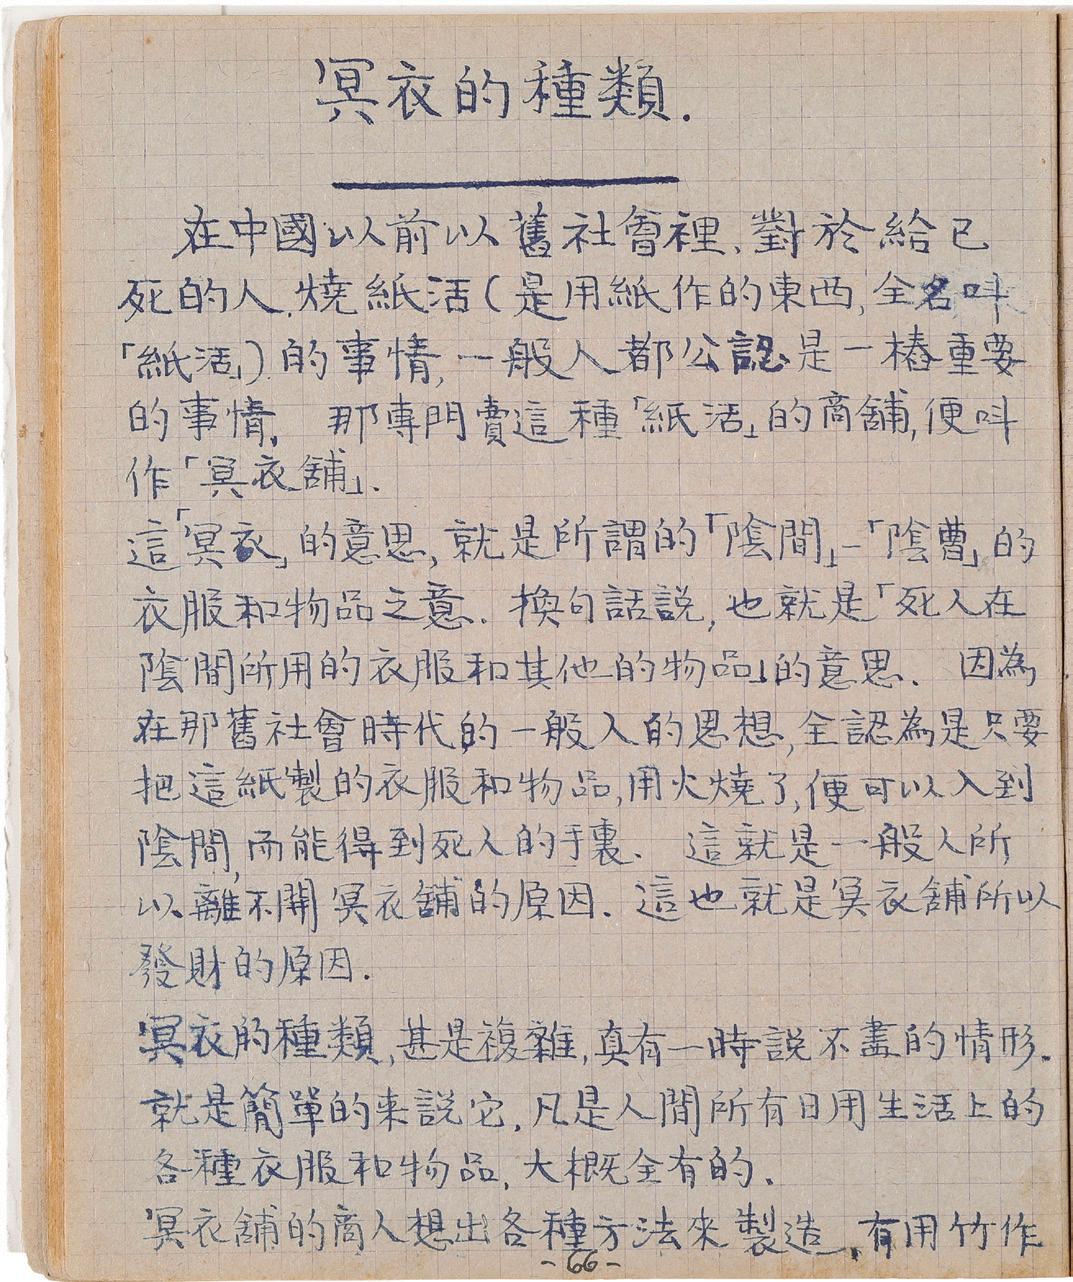 冥衣的種類.
在中國以前以舊社會裡、對於給已
死的人、燒紙活(是用紙作的東西,全名叫
「紙活」)的事情,一般人都公認是一樁重要
的事情,那專門賣這種「紙活」的商舖,便叫
作「冥衣舖」.
這「冥衣」的意思,就是所謂的「陰間」-「陰曹」的
衣服和物品之意.換句話說,也就是「死人在
陰間所用的衣服和其他的物品」的意思.因為
在那舊社會時代的一般人的思想,全認為是只要
把這紙製的衣服和物品,用火燒了,便可以入到
陰間,而能得到死人的手裏.這就是一般人所
以離不開冥衣舖的原因.這也就是冥衣舖所以
發財的原因.
冥衣的種類,甚是複雜,真有一時説不盡的情形.
就是簡單的来説它,凡是人間所有日用生活上的
各種衣服和物品,大概全有的.
冥衣舖的商人想出各種方法來製造,有用竹作
-66-